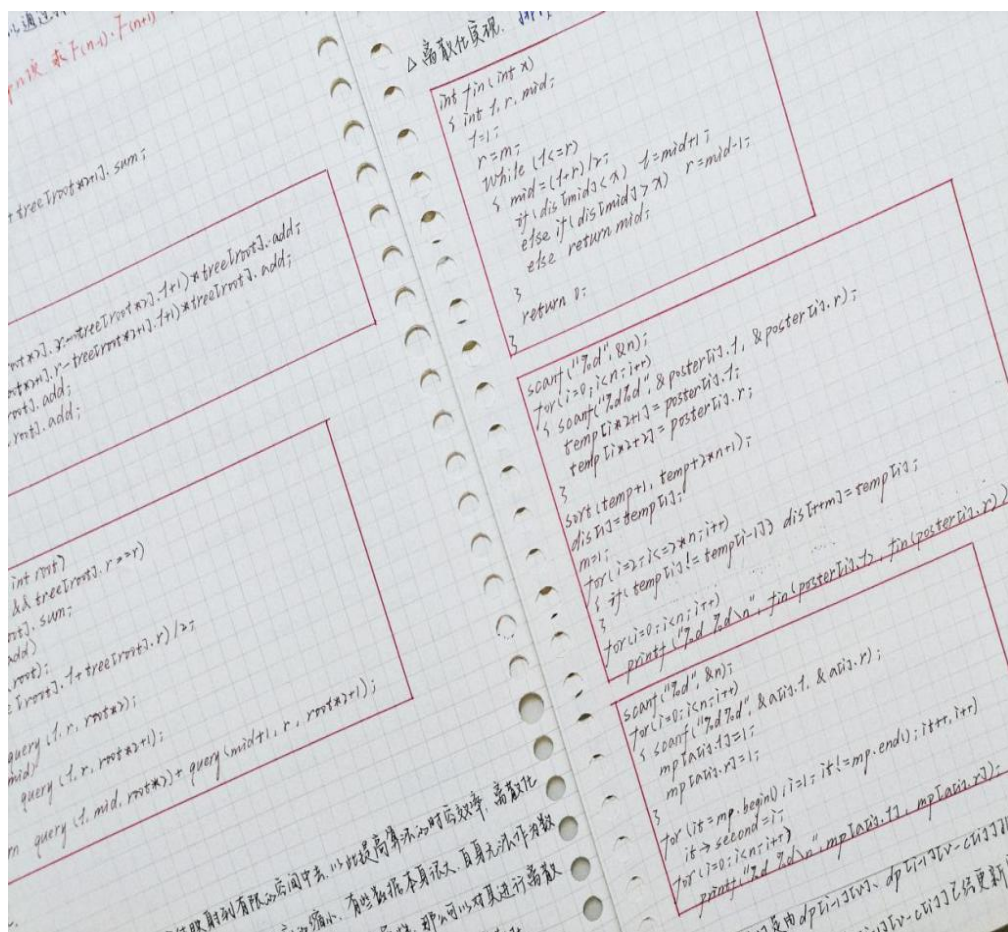 以通过
求F(n-1)·F(n+1)
tree[root*2+1].sum;
oot*2].r-tree[root*2].l+1)*tree[root].add;
oot*2+1].r-tree[root*2+1].l+1)*tree[root].add;
root].add;
root].add;
int root)
&& tree[root].r==r)
oot].sum;
add)
root);
[root].l+tree[root].r)/2;
query(l,r,root*2);
mid)
query(l,r,root*2+1);
query(l,mid,root*2)+query(mid+1,r,root*2+1);
映射到有限的空间中去,以此提高算法的时空效率,离散化
缩小,有些数据本身很大,自身无法作为数
那么可以对其进行离散
△离散化实现.
int fin(int x)
{ int l,r,mid;
l=1;
r=m;
while(l<=r)
{ mid=(l+r)/2;
if(dis[mid]<x) l=mid+1;
else if(dis[mid]>x) r=mid-1;
else return mid;
}
return 0;
}
scanf("%d",&n);
for(i=0;i<n;i++)
{ scanf("%d%d",&poster[i].l,&poster[i].r);
temp[i*2+1]=poster[i].l;
temp[i*2+2]=poster[i].r;
}
sort(temp+1,temp+2*n+1);
dis[1]=temp[1];
m=1;
for(i=2;i<=2*n;i++)
{ if(temp[i]!=temp[i-1]) dis[++m]=temp[i];
}
for(i=0;i<n;i++)
printf("%d %d\n",fin(poster[i].l),fin(poster[i].r))
scanf("%d",&n);
for(i=0;i<n;i++)
{ scanf("%d%d",&a[i].l,&a[i].r);
mp[a[i].l]=1;
mp[a[i].r]=1;
}
for(it=mp.begin(),i=1;it!=mp.end();it++,i++)
it->second=i;
for(i=0;i<n;i++)
printf("%d %d\n",mp[a[i].l],mp[a[i].r]);
是由dp[i-1][v]、dp[i-1][v-c[i]]
[i-1][v-c[i]]已经更新